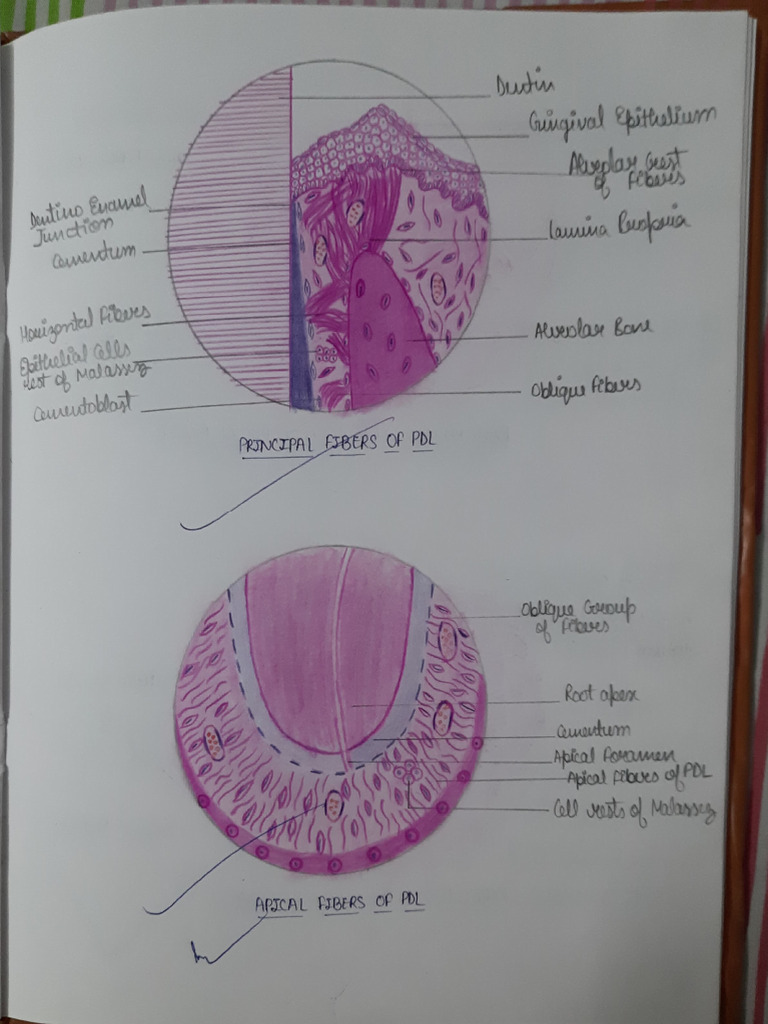 Dentin
Gingival Epithelium
Alveolar Crest
of Fibers
Dentino Enamel
Junction
Lamina Propria
Cementum
Horizontal Fibers
Alveolar Bone
Epithelial Cells
rest of Malassez
Oblique Fibers
Cementoblast
PRINCIPAL FIBERS OF PDL
Oblique Group
of Fibers
Root apex
Cementum
Apical Foramen
Apical Fibers of PDL
Cell rests of Malassez
APICAL FIBERS OF PDL